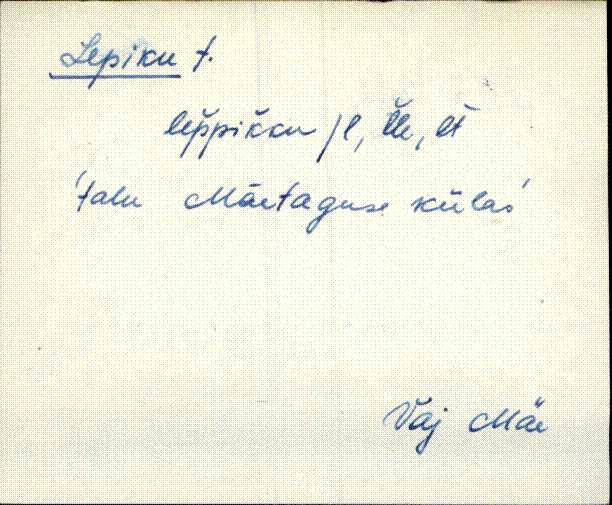 Lepiku t.
lep̆pik̆ku /l, l̆le, lt̆
'talu Mäetaguse külas'
Vaj Mäe